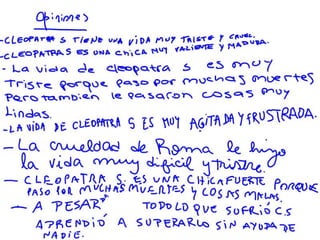 Opiniones
-CLEOPATRA S TIENE UNA VIDA MUY TRISTE Y CRUEL.
-CLEOPATRAS ES UNA CHICA MUY VALIENTE Y MADURA.
- La vida de cleopatra s es muy
Triste porque paso por muchas muertes
Pero tambien le pasaron cosas muy
Lindas.
-LA VIDA DE CLEOPATRA S ES MUY AGITADA Y FRUSTRADA.
- La crueldad de Roma le hizo
la vida muy dificil y triste.
- CLEOPATRA S. ES UNA CHICA FUERTE PORQUE
PASO POR MUCHAS MUERTES Y COSAS MALAS.
- A PESAR TODO LO QUE SUFRIÓ C.S
APRENDIÓ A SUPERARLO SIN AYUDA DE
NADIE.